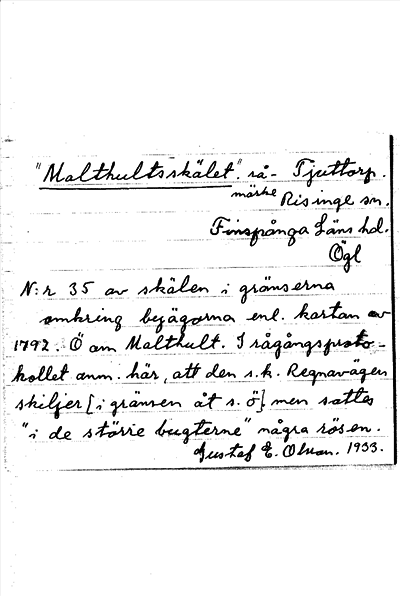 "Malthultsskälet" rå- Tjuttorp.
märke Risinge sn.
Finspånga Läns hd.
Ögl
N:r 35 av skälen i gränserna
omkring beägorna enl. kartan av
1792. Ö om Malthult. I rågångsproto-
kollet anm. här, att den s.k. Regnavägen
skiljer [i gränsen åt s. ö] men sattes
"i de större bugterne" några rösen.
Gustaf E. Olsson. 1933.